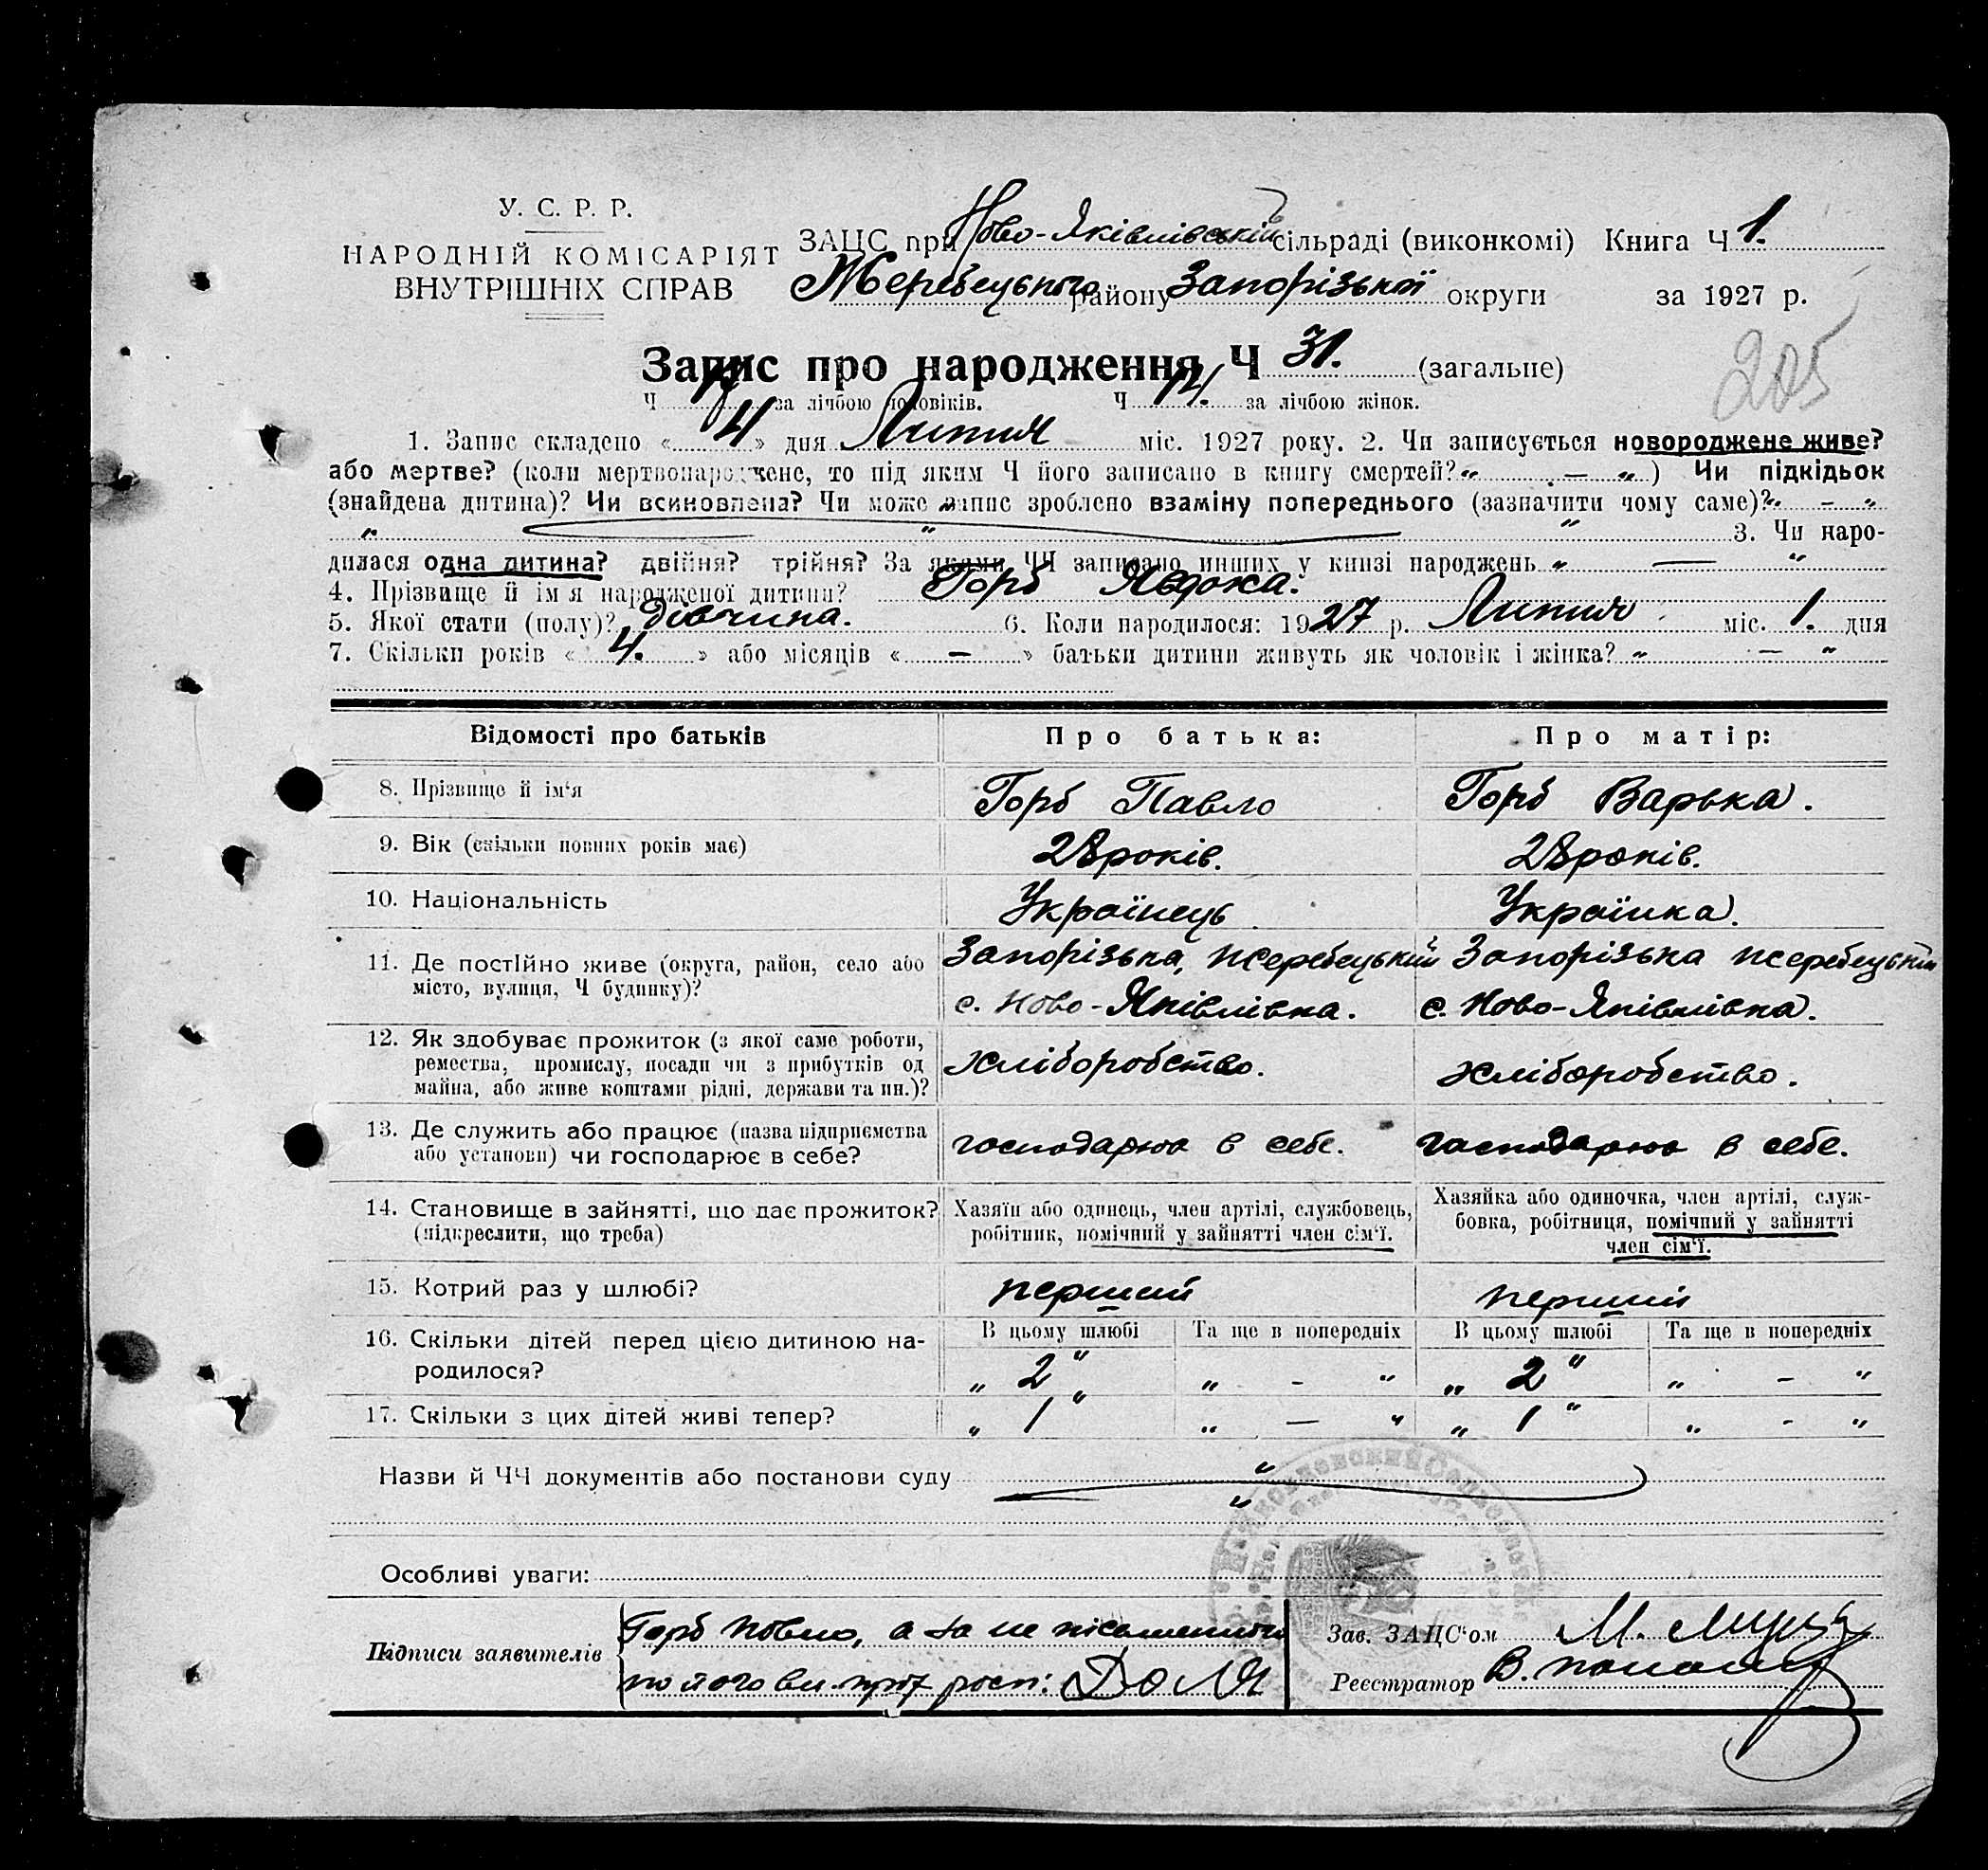 У. С. Р. Р.
НАРОДНІЙ КОМІСАРІЯТ
ВНУТРІШНІХ СПРАВ
ЗАЦС при Ново-Яківлівській сільраді (виконкомі) Книга Ч 1.
Жеребецького району Запорізької округи за 1927 р.
205
Запис про народження Ч 31. (загальне)
Ч за лічбою чоловіків. Ч 14. за лічбою жінок.
1. Запис складено « 4 » дня Липня міс. 1927 року. 2. Чи записується новороджене живе?
або мертве? (коли мертвонароджене, то під яким Ч його записано в книгу смертей? „ — „ ) Чи підкідьок
(знайдена дитина)? Чи всиновлена? Чи може запис зроблено взаміну попереднього (зазначити чому саме)? „ — „
„ „ „ 3. Чи наро-
дилася одна дитина? двійня? трійня? За якими ЧЧ записано инших у книзі народжень „ — „
4. Прізвище й ім'я народженої дитини? Горб Явдока.
5. Якої стати (полу)? Дівчина. 6. Коли народилося: 1927 р. Липня міс. 1. дня
7. Скільки років « 4. » або місяців « — » батьки дитини живуть як чоловік і жінка? „ — „
Відомості про батьків Про батька: Про матір:
8. Прізвище й ім'я Горб Павло Горб Варька.
9. Вік (скільки повних років має) 28 років. 28 років.
10. Національність Українець Українка.
11. Де постійно живе (округа, район, село або місто, вулиця, Ч будинку)? Запорізька, Жеребецький Запорізька Жеребецький
с. Ново-Яківлівка. с. Ново-Яківлівка.
12. Як здобуває прожиток (з якої саме роботи,
ремества, промислу, посади чи з прибутків од
майна, або живе коштами рідні, держави та ин.)? хліборобство. хліборобство.
13. Де служить або працює (назва підприємства
або установи) чи господарює в себе? господарюю в себе. господарюю в себе.
14. Становище в зайнятті, що дає прожиток?
(підкреслити, що треба)
Хазяїн або одинець, член артілі, службовець,
робітник, помічний у зайнятті член сім'ї.
Хазяйка або одиночка, член артілі, служ-
бовка, робітниця, помічний у зайнятті
член сім'ї.
15. Котрий раз у шлюбі? перший перший
16. Скільки дітей перед цією дитиною на-
родилося?
В цьому шлюбі Та ще в попередніх В цьому шлюбі Та ще в попередніх
„ 2 „ „ - „ „ 2 „ „ - „
17. Скільки з цих дітей живі тепер? „ 1 „ „ — „ „ 1 „ „ - „
Назви й ЧЧ документів або постанови суду „
„
Особливі уваги:
Підписи заявителів Горб Павло, а за не письменного
по його росп:
Зав. ЗАЦС'ом М.
Реєстратор В.